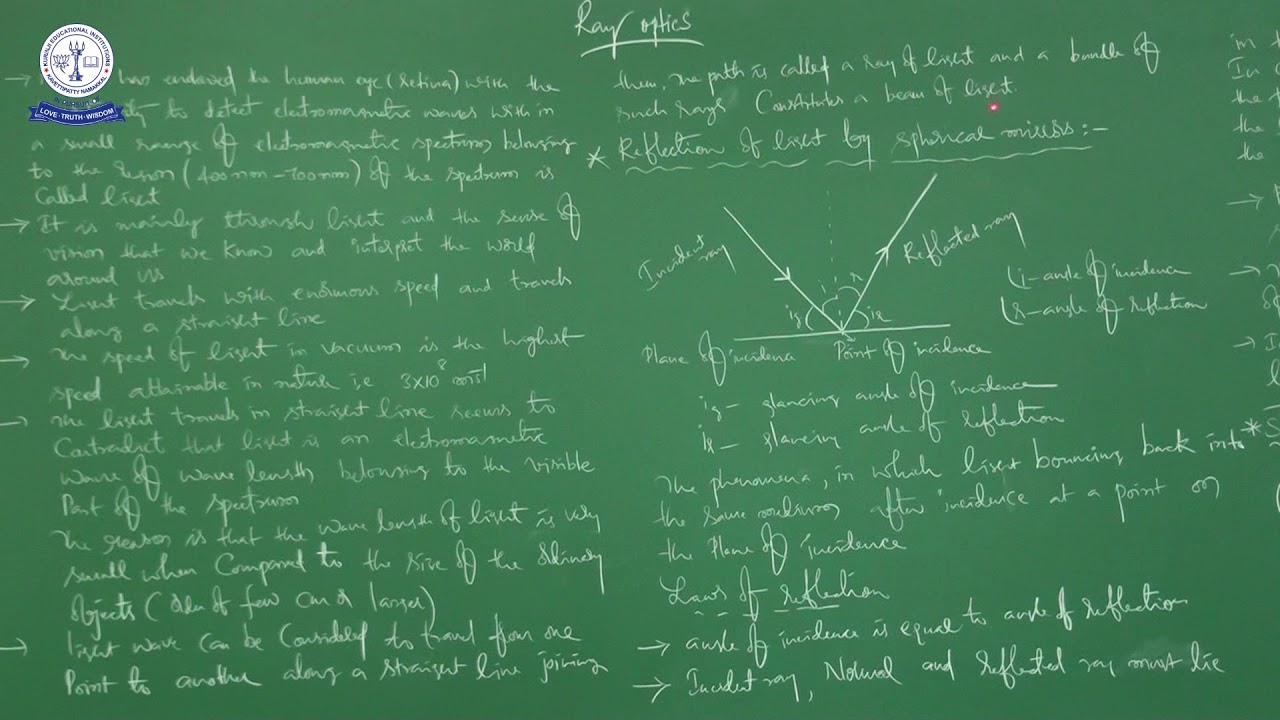 Ray optics
KURINJI EDUCATIONAL INSTITUTIONS
KAVETTIPATTY NAMAKKAL
LOVE · TRUTH · WISDOM
→ has endowed the human eye (retina) with the
to detect electromagnetic waves with in
a small range of electromagnetic spectrum belonging
to the region (400nm - 700nm) of the spectrum is
Called light
→ It is mainly through light and the sense of
vision that we know and interpret the world
around us
→ Light travels with enormous speed and travels
along a straight line
→ The speed of light in vacuum is the highest
speed attainable in nature i.e 3×10⁸ ms⁻¹
→ The light travels in straight line seems to
Contradict that light is an electromagnetic
wave of wave length belonging to the visible
Part of the spectrum
The reason is that the wave length of light is very
small when Compared to the size of the
objects ( of few cm or larger)
→ light wave can be Considered to travel from one
Point to another along a straight line joining
them, The path is called a ray of light and a bundle of
such rays Constitutes a beam of light.
* Reflection of light by spherical mirrors:-
Incident ray
Reflected ray
i r
ig ir
∠i - angle of incidence
∠r - angle of reflection
Plane of incidence Point of incidence
ig - glancing angle of incidence
ir - glancing angle of reflection
The phenomena, in which light bouncing back into
the same medium after incidence at a point on
the Plane of incidence
Laws of reflection
→ angle of incidence is equal to angle of reflection
→ Incident ray, Normal and reflected ray must lie
in
the
the
the